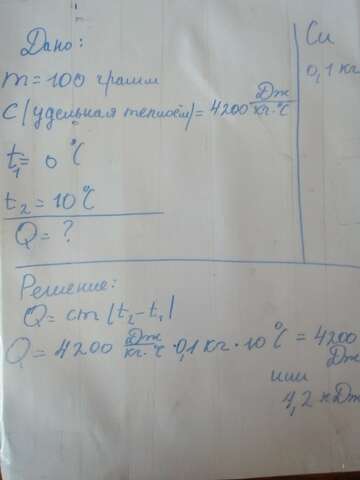 Дано:
Си
m = 100 грамм
0,1 кг
C (удельная теплоём) = 4200 Дж/кг·°C
t₁ = 0 °C
t₂ = 10 °C
Q = ?
Решение:
Q = cm (t₂ - t₁)
Q = 4200 Дж/кг·°C · 0,1 кг · 10 °C = 4200 Дж
или
4,2 кДж